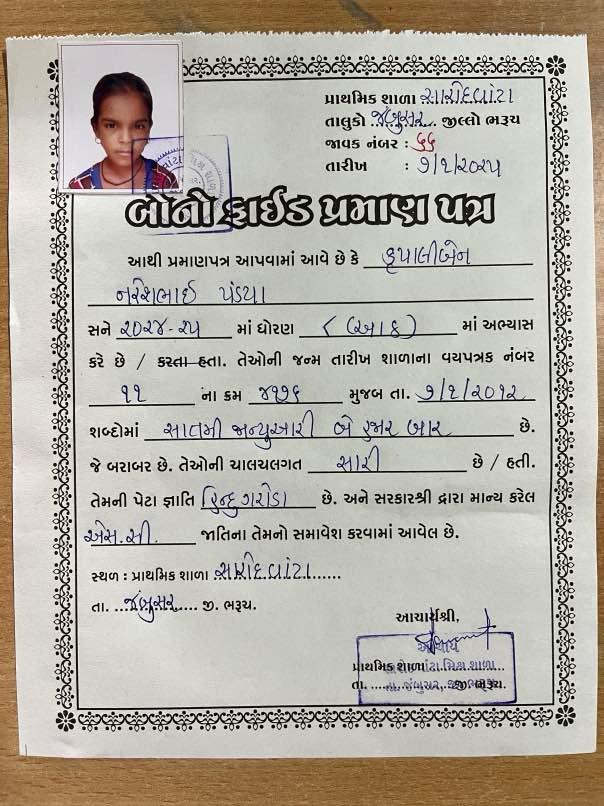 પ્રાથમિક શાળા સારોદવાંટા
તાલુકો જંબુસર જીલ્લો ભરૂચ
જાવક નંબર : ૬૬
તારીખ : ૭/૧/૨૦૨૫
બોનો ફાઈડ પ્રમાણ પત્ર
આથી પ્રમાણપત્ર આપવામાં આવે છે કે કૃપાલીબેન
નરેશભાઈ પંડયા
સને ૨૦૨૪-૨૫ માં ધોરણ ૮ (આઠ) માં અભ્યાસ
કરે છે / કરતા હતા. તેઓની જન્મ તારીખ શાળાના વયપત્રક નંબર
૧૧ ના ક્રમ ૪૧૧૬ મુજબ તા. ૭/૧/૨૦૧૨
શબ્દોમાં સાતમી જાન્યુઆરી બે હજાર બાર છે.
જે બરાબર છે. તેઓની ચાલચલગત સારી છે / હતી.
તેમની પેટા જ્ઞાતિ હિન્દુ ગરોડા છે. અને સરકારશ્રી દ્વારા માન્ય કરેલ
એસ.સી. જાતિના તેમનો સમાવેશ કરવામાં આવેલ છે.
સ્થળ : પ્રાથમિક શાળા સારોદવાંટા
તા. જંબુસર જી. ભરૂચ.
આચાર્યશ્રી,
આચાર્ય
પ્રાથમિક શાળા
સારોદવાંટા મિશ્ર શાળા
તા. જી. ભરૂચ.
તા. જંબુસર, જી. ભરૂચ